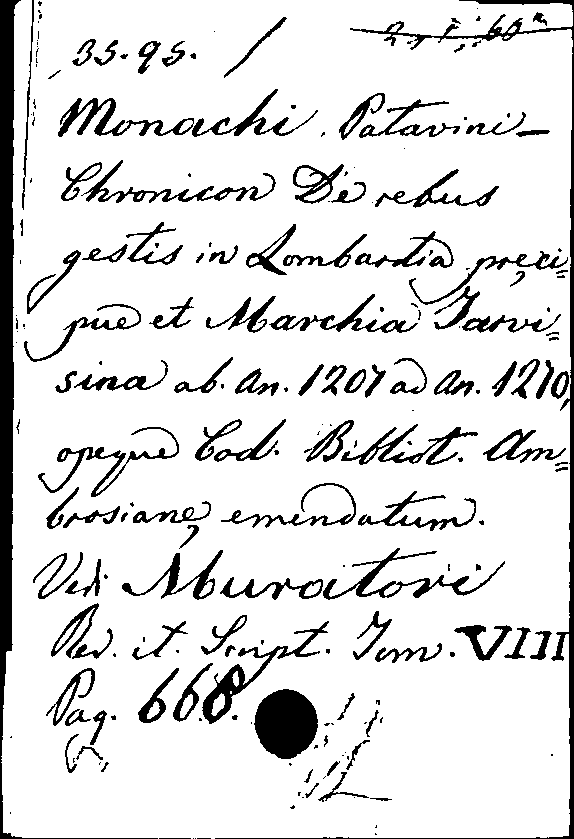 35.95. /
Monachi Patavini -
Chronicon De rebus
gestis in Lombardia pręci=
pue et Marchia Tarvi=
sina ab. An. 1207 ad An. 1270,
opeque Cod. Bibliot. Am=
brosianę emendatum.
Vedi Muratori
Rer. it. Script. Tom. VIII
Pag. 668.